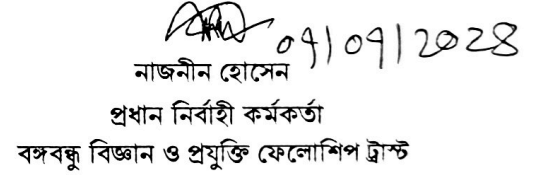 ০৭/০৭/২০২৪
নাজনীন হোসেন
প্রধান নির্বাহী কর্মকর্তা
বঙ্গবন্ধু বিজ্ঞান ও প্রযুক্তি ফেলোশিপ ট্রাস্ট